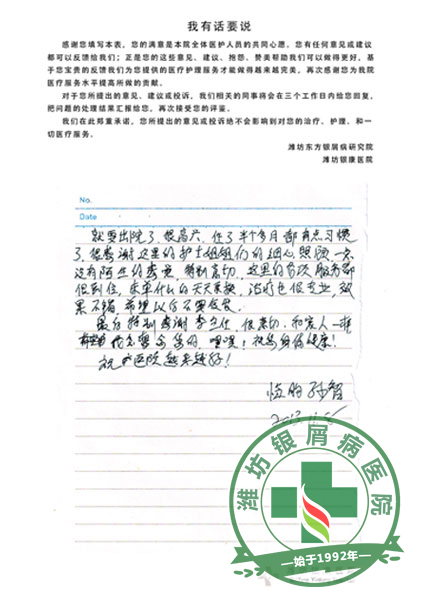 我有话要说
感谢您填写本表，您的满意是本院全体医护人员的共同心愿。您有任何意见或建议
都可以反馈给我们；正是您的这些意见、建议、抱怨、赞美帮助我们可以做得更好，基
于您宝贵的反馈我们为您提供的医疗护理服务才能做得越来越完美，再次感谢您为我院
医疗服务水平提高所做的贡献。
对于您所提出的意见、建议或投诉，我们相关的同事将会在三个工作日内给您回复，
把问题的处理结果汇报给您，再次接受您的评鉴。
我们在此郑重承诺，您所提出的意见或投诉绝不会影响到对您的治疗、护理、和一
切医疗服务。
潍坊东方银屑病研究院
潍坊银康医院
No.
Date
就要出院了，很高兴，住了半个多月都有点习惯
了，很感谢这里的护士姐姐们的细心照顾，一点
没有陌生的感觉，特别亲切，这里的各项服务都
很到位，床单什么的天天来换，治疗也很专业，效
果不错，希望以后不要复发。
最后特别感谢李主任，很亲切，和家人一样
我也要会,嘿嘿！祝身体健康！
祝贵医院越来越好！
孙智
潍坊银屑病医院
始于1992年